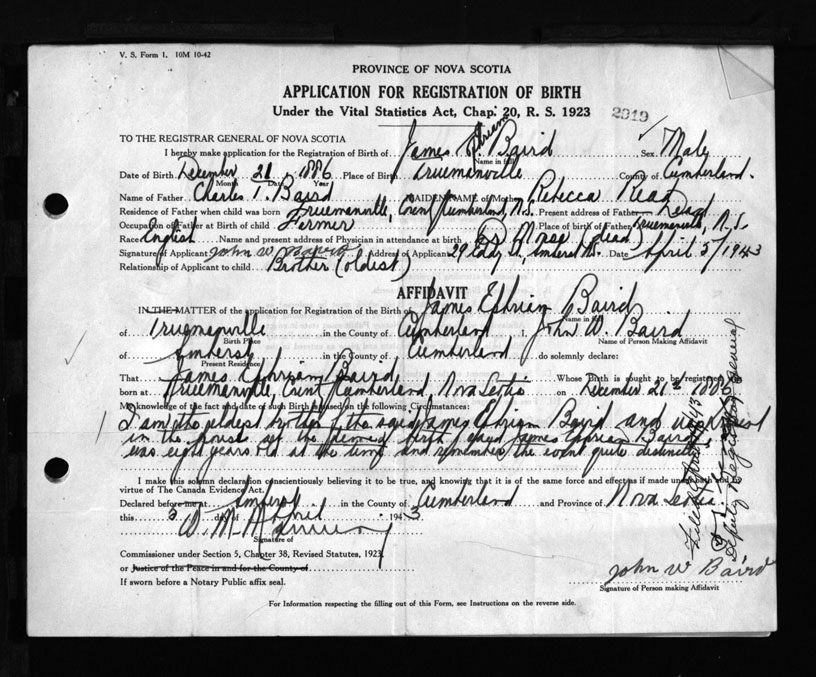 V. S. Form 1. 10M 10-42
PROVINCE OF NOVA SCOTIA
APPLICATION FOR REGISTRATION OF BIRTH
Under the Vital Statistics Act, Chap. 20, R. S. 1923
2919
TO THE REGISTRAR GENERAL OF NOVA SCOTIA
I hereby make application for the Registration of Birth of James Ephriam Baird Sex Male
Name in full
Date of Birth December 21 1886 Place of Birth Truemanville County of Cumberland.
Month Date Year
Name of Father Charles T. Baird MAIDEN NAME of Mother Rebecca Read
Residence of Father when child was born Truemanville, Cumberland, N.S. Present address of Father Dead
Occupation of Father at Birth of child Farmer Place of birth of Father Truemanville, N.S.
Race English Name and present address of Physician in attendance at birth Dr Morse (Dead)
Signature of Applicant John W Baird Address of Applicant 29 Eddy St, Amherst N.S. Date April 5/1943
Relationship of Applicant to child Brother (oldest)
AFFIDAVIT
IN THE MATTER of the application for Registration of the Birth of James Ephriam Baird
Name in full
of Truemanville in the County of Cumberland I, John W. Baird
Birth Place Name of Person Making Affidavit
of Amherst in the County of Cumberland do solemnly declare:
Present Residence
That James Ephriam Baird Whose Birth is sought to be registered
born at Truemanville, Cumberland, Nova Scotia on December 21st 1886
My knowledge of the fact and date of such Birth is based on the following Circumstances:
I am the oldest brother of the said James Ephriam Baird and was
in the house at the time of birth of said James Ephriam Baird
was eight years old at the time and remember the event quite distinctly
I make this solemn declaration conscientiously believing it to be true, and knowing that it is of the same force and effect as if made under oath and by
virtue of The Canada Evidence Act.
Declared before me at Amherst in the County of Cumberland and Province of Nova Scotia
this 5 day of April 1943
W. M.
Signature of
Commissioner under Section 5, Chapter 38, Revised Statutes, 1923
or Justice of the Peace in and for the County of
If sworn before a Notary Public affix seal.
John W Baird
Signature of Person making Affidavit
For Information respecting the filling out of this Form, see Instructions on the reverse side.
Filed
Deputy Registrar General